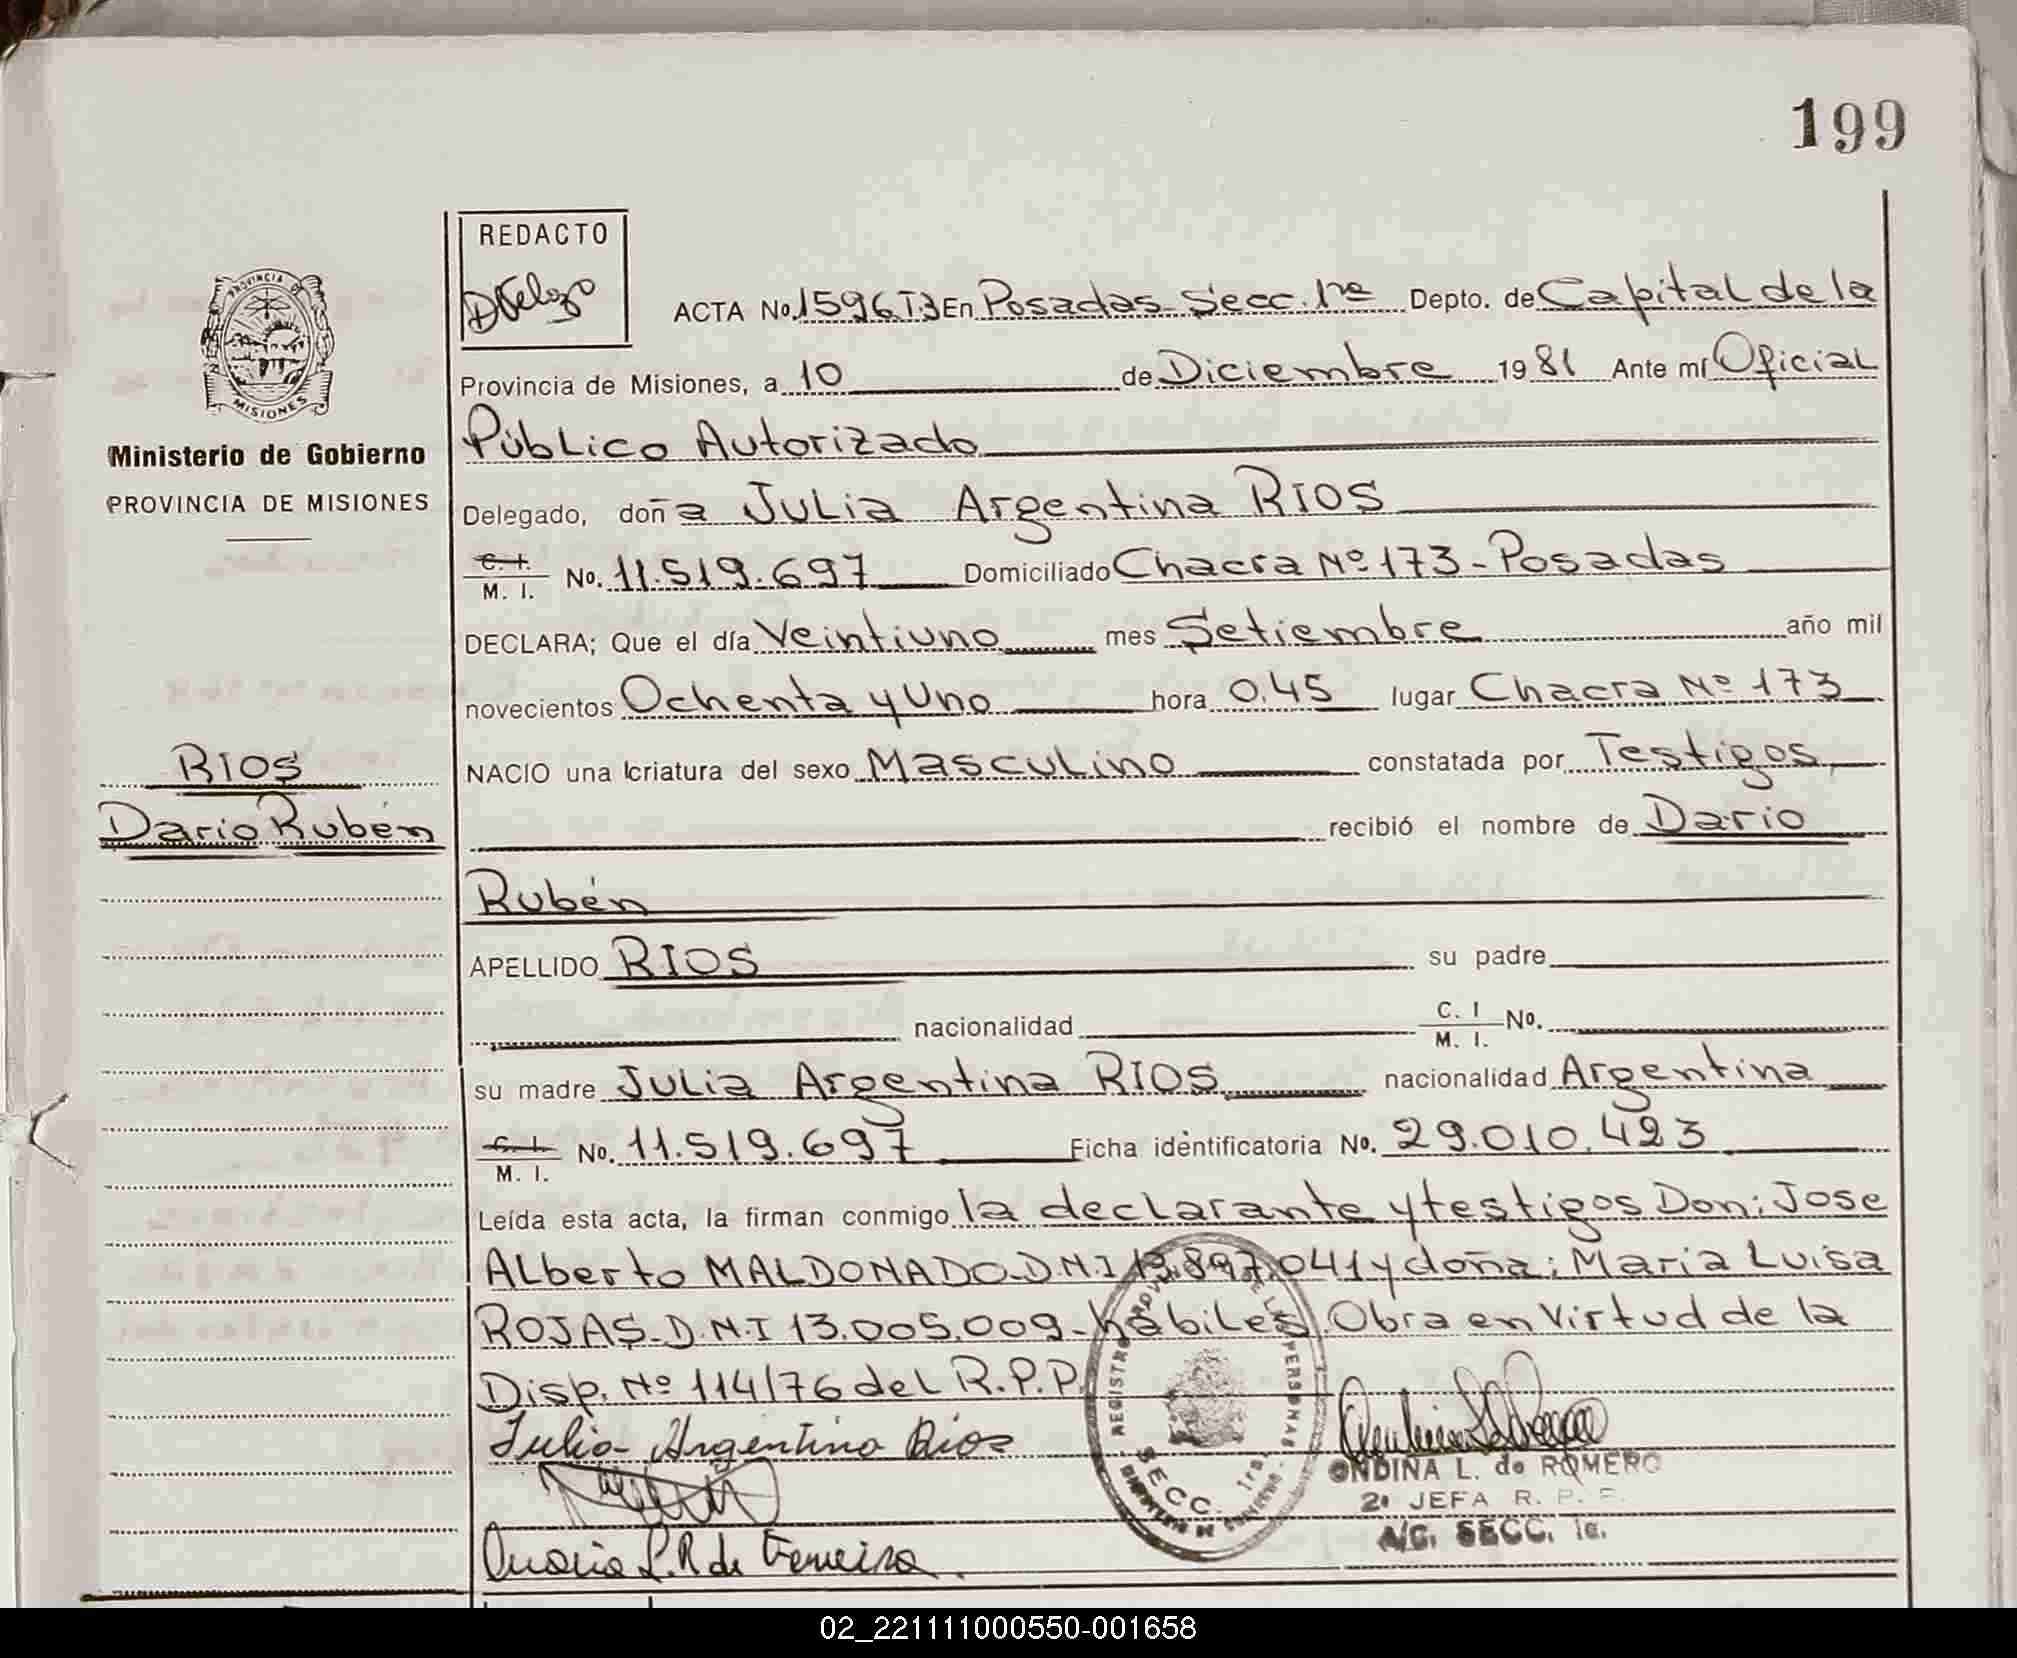 199
REDACTO
ACTA No. 1596T3 En Posadas-Secc. 1ra Depto. de Capital de la
Provincia de Misiones, a 10 de Diciembre 1981 Ante mí Oficial
Público Autorizado
Delegado, doña Julia Argentina RIOS
C. I. M. I. No. 11.519.697 Domiciliado Chacra Nº 173-Posadas
DECLARA; Que el día Veintiuno mes Setiembre año mil
novecientos Ochenta y Uno hora 0.45 lugar Chacra Nº 173
NACIO una criatura del sexo Masculino constatada por Testigos
recibió el nombre de Dario
Rubén
APELLIDO RIOS su padre
nacionalidad C. I M. I. No.
su madre Julia Argentina RIOS nacionalidad Argentina
C. I. M. I. No. 11.519.697 Ficha identificatoria No. 29.010.423
Leída esta acta, la firman conmigo la declarante y testigos Don: Jose
Alberto MALDONADO-D.N.I 13.897.041 y doña: Maria Luisa
ROJAS-D.N.I 13.005.009-hábiles. Obra en Virtud de la
Disp. Nº 114/76 del R.P.P.
Julia Argentina Rios
Maria L. R de Ferreira.
PROVINCIA DE MISIONES
Ministerio de Gobierno
PROVINCIA DE MISIONES
RIOS
Dario Rubén
REGISTRO PROVINCIAL DE LAS PERSONAS
SECC. 1ra.
ONDINA L. de ROMERO
2a JEFA R. P. P.
A/C. SECC. 1a.
02_221111000550-001658